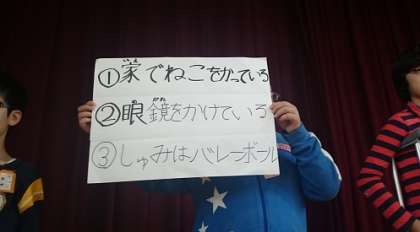 ①家でねこをかっている
②眼鏡をかけている
③しゅみはバレーボール